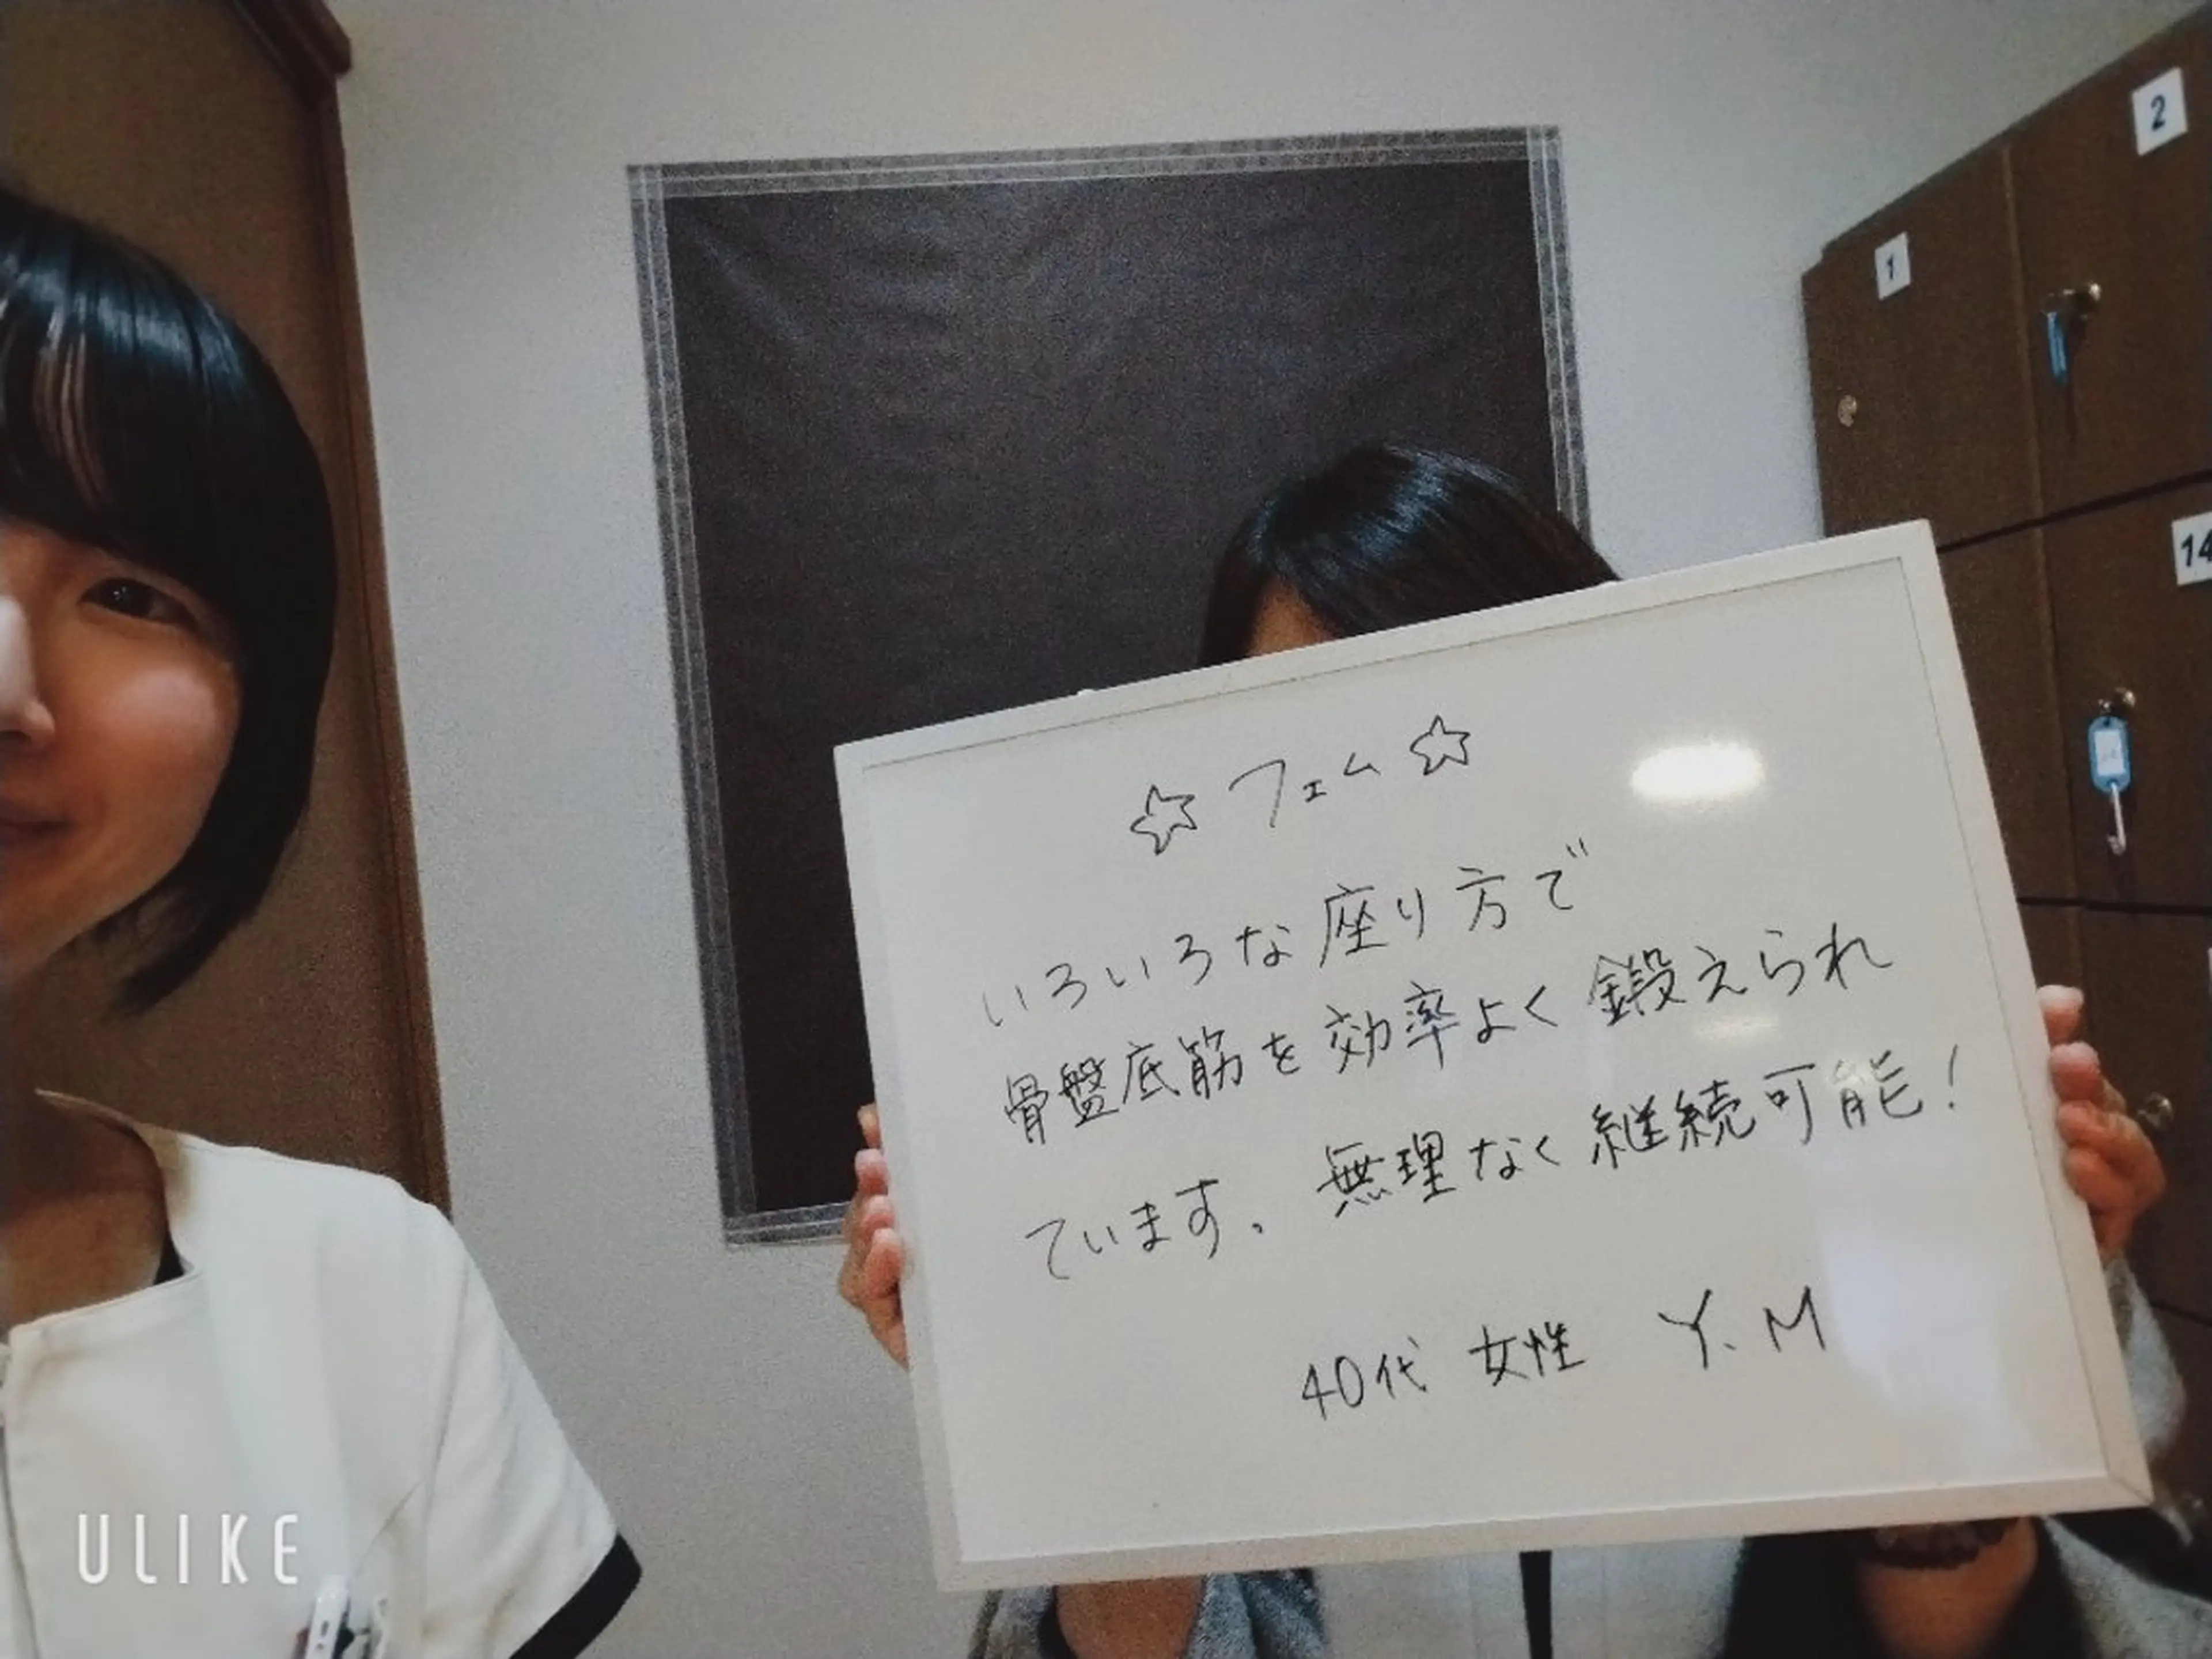 ☆フェム☆
いろいろな座り方で
骨盤底筋を効率よく鍛えられ
ています。無理なく継続可能!
40代 女性 Y.M
1
2
14
ULIKE